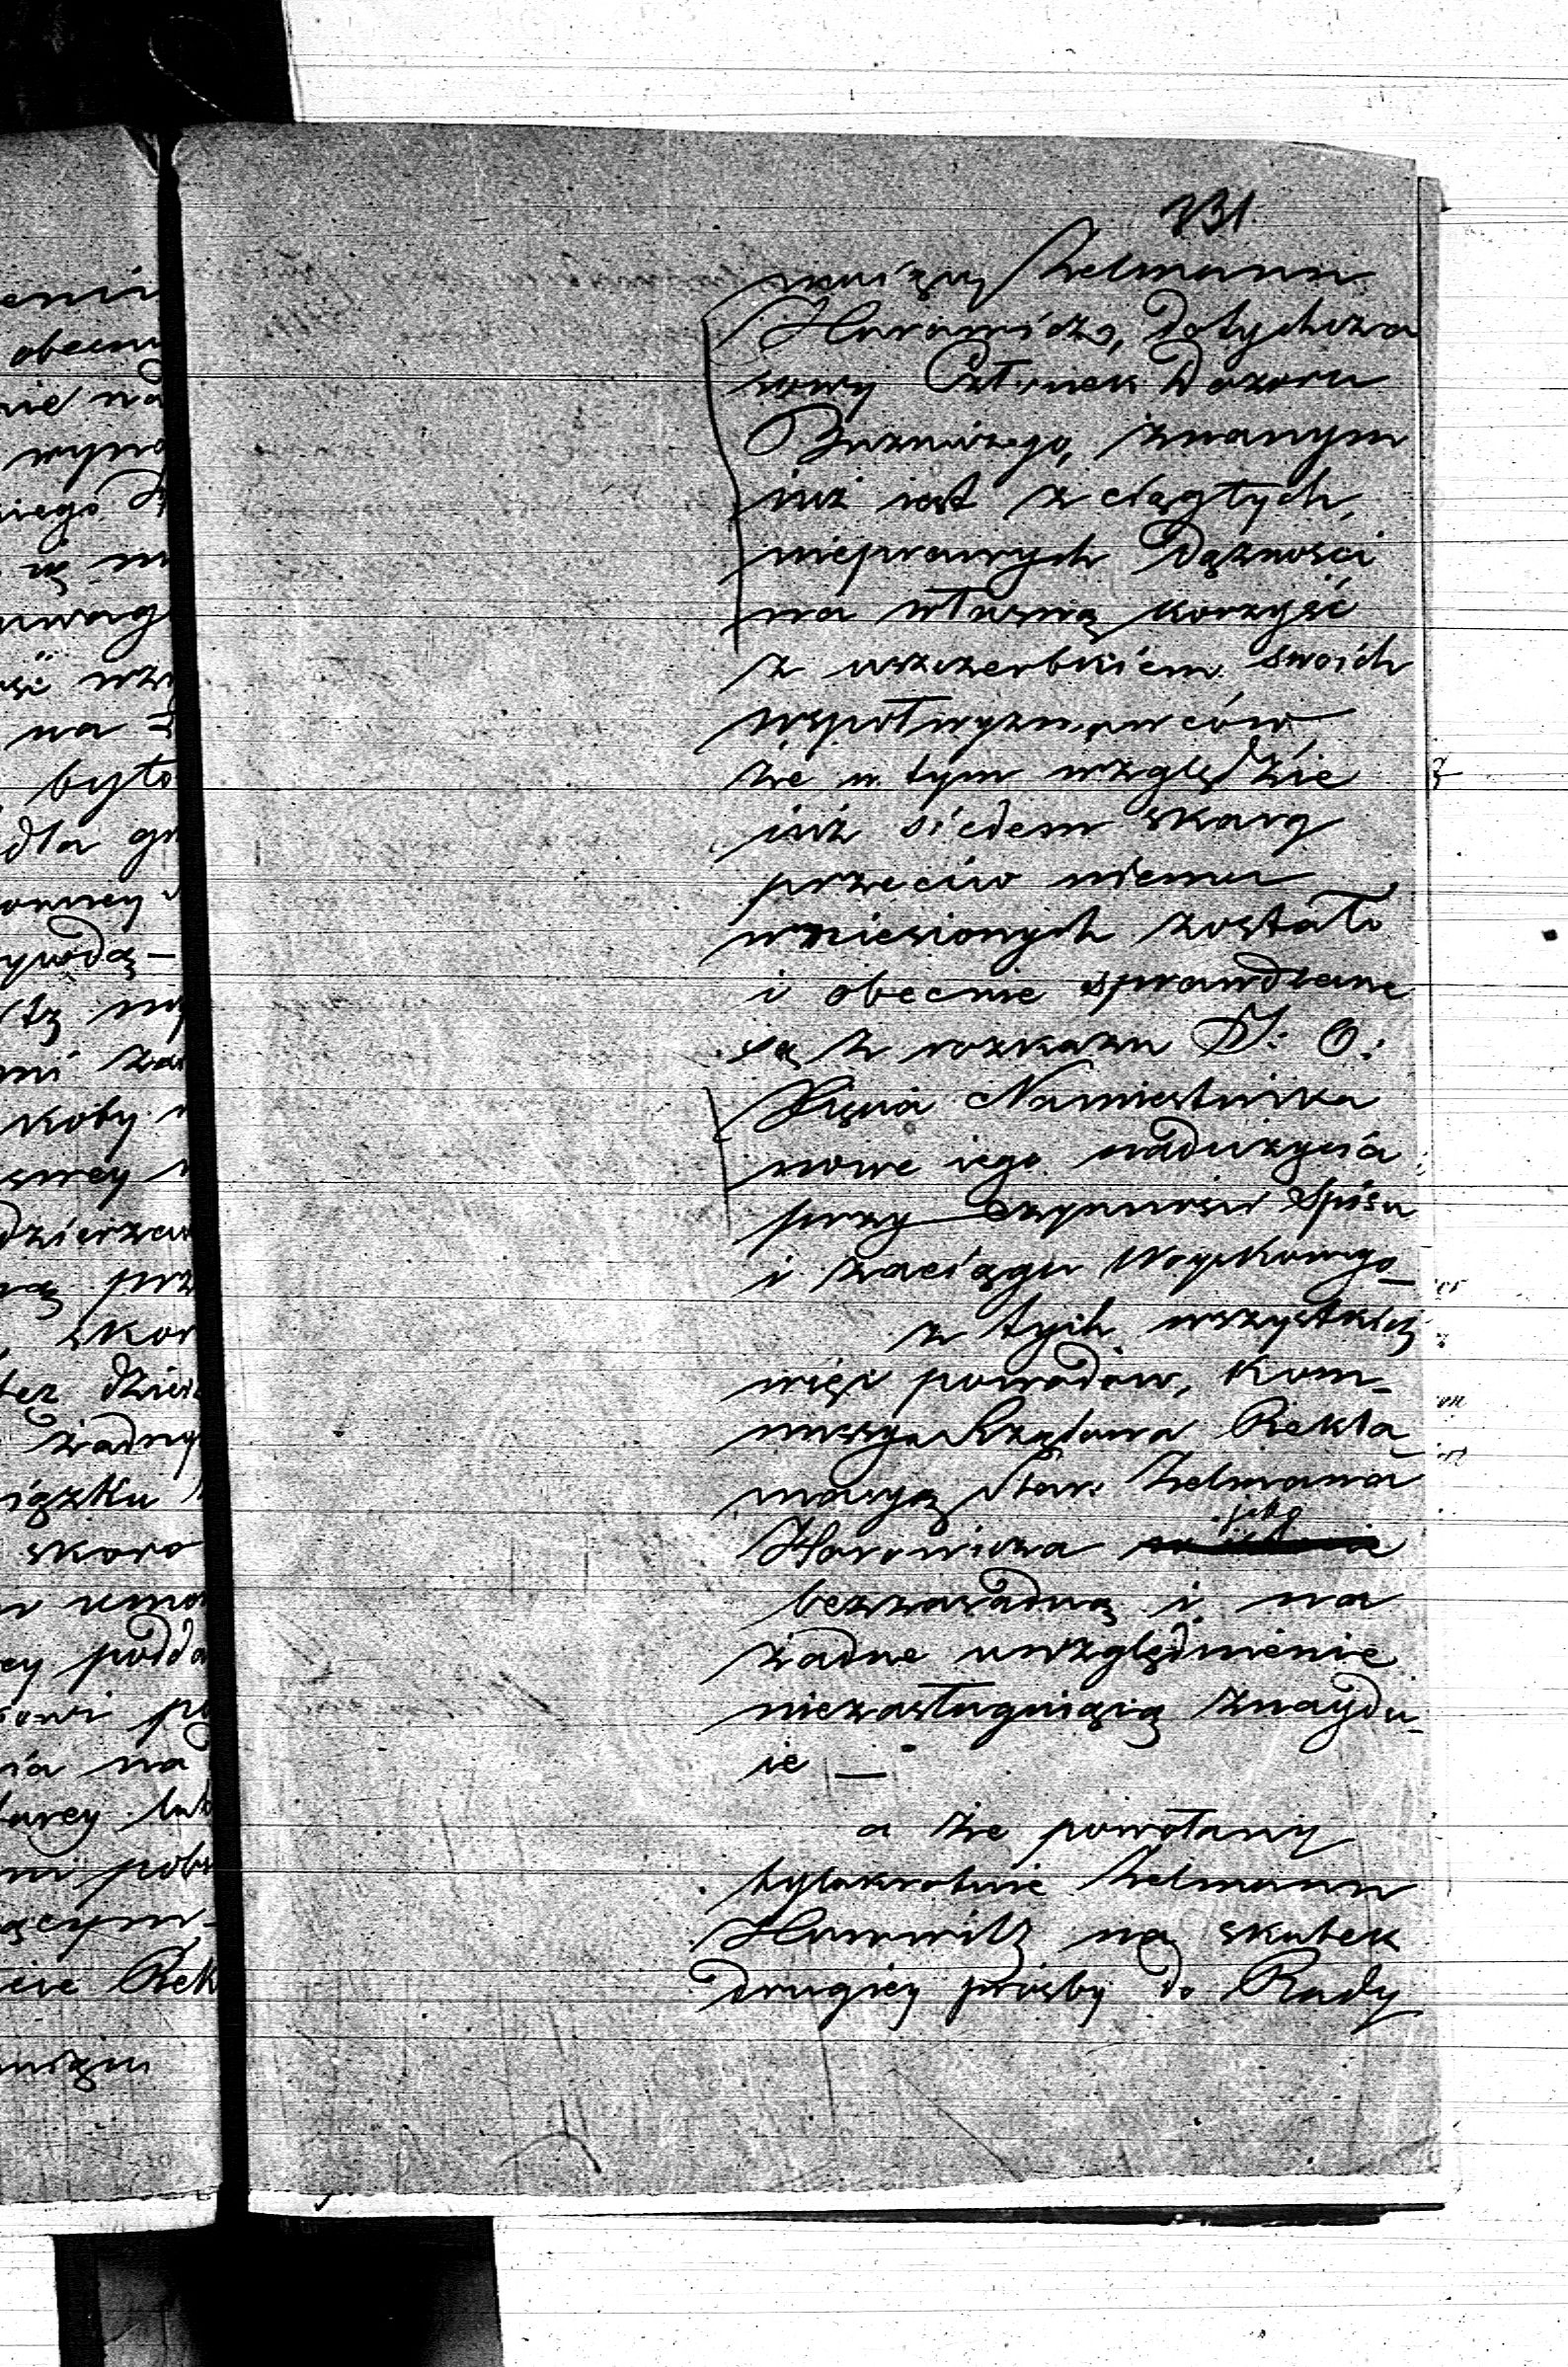 231
Zelmann
Horowicz, dotychcza
sowy Członek Dozoru
Bużniczego, znanym
iuż iest z ciągłych,
nieprawych dążności
na własną korzyść
z uszczerbkiem swoich
współwyznawców
że w tym względzie
iuż siedem skarg
przeciw niemu
wniesionych zostało
i obecnie sprawdzane
są z rozkazu J: O:
Xięcia Namiestnika
nowe iego nadużycia
przy czynności Spisu
i zaciągu Woyskowego
z tych wszystkich
więc powodów, Kom-
missya Rządowa Rekla
macyą Star: Zelmana
Horowicza jako
bezzasadną i na
żadne uwzględnienie
niezasługuiącą znaydu-
ie —
a że powołany
tylokrotnie Zelmann
Horowitz na skutek
drugiey prośby do Rady
enia
obecn
nie na
wypro
niego
uwag
wzi
na
było
dla gr
ywodą-
koby
dzierzaw
prz
skor
też dziei
żadny
iązku
skoro
umo
ey podda
sowi po
ia na
pob
ącym
Rek